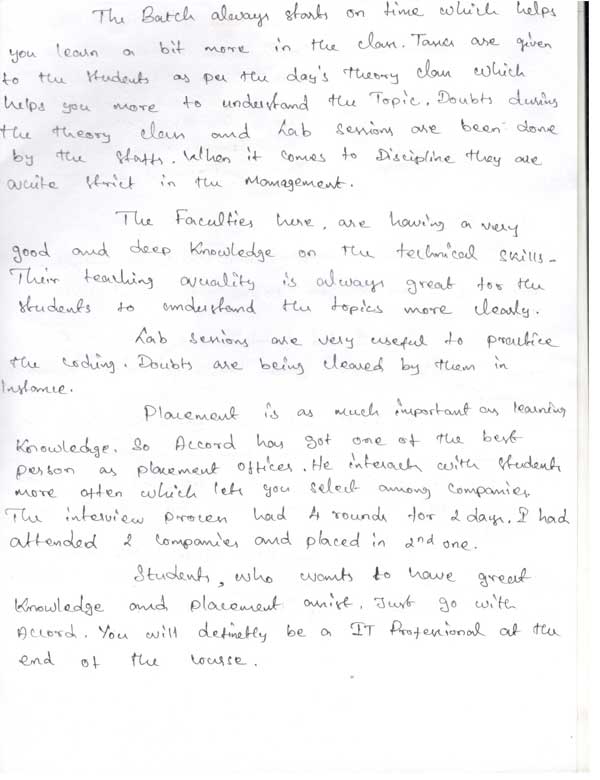 The Batch always starts on time which helps
you learn a bit more in the class. Tasks are given
to the students as per the day's theory class which
helps you more to understand the Topic. Doubts during
the theory class and Lab sessions are been done
by the staffs. When it comes to Discipline they are
quite strict in the Management.
The Faculties here, are having a very
good and deep Knowledge on the technical skills.
Their teaching quality is always great for the
students to understand the topics more clearly.
Lab sessions are very useful to practice
the coding. Doubts are being cleared by them in
Instance.
Placement is as much important as learning
Knowledge. So Accord has got one of the best
person as placement officer. He interacts with students
more often which lets you select among companies.
The interview process had 4 rounds for 2 days. I had
attended 2 companies and placed in 2nd one.
Students, who wants to have great
Knowledge and placement assist. Just go with
Accord. You will definetly be a IT Professional at the
end of the course.